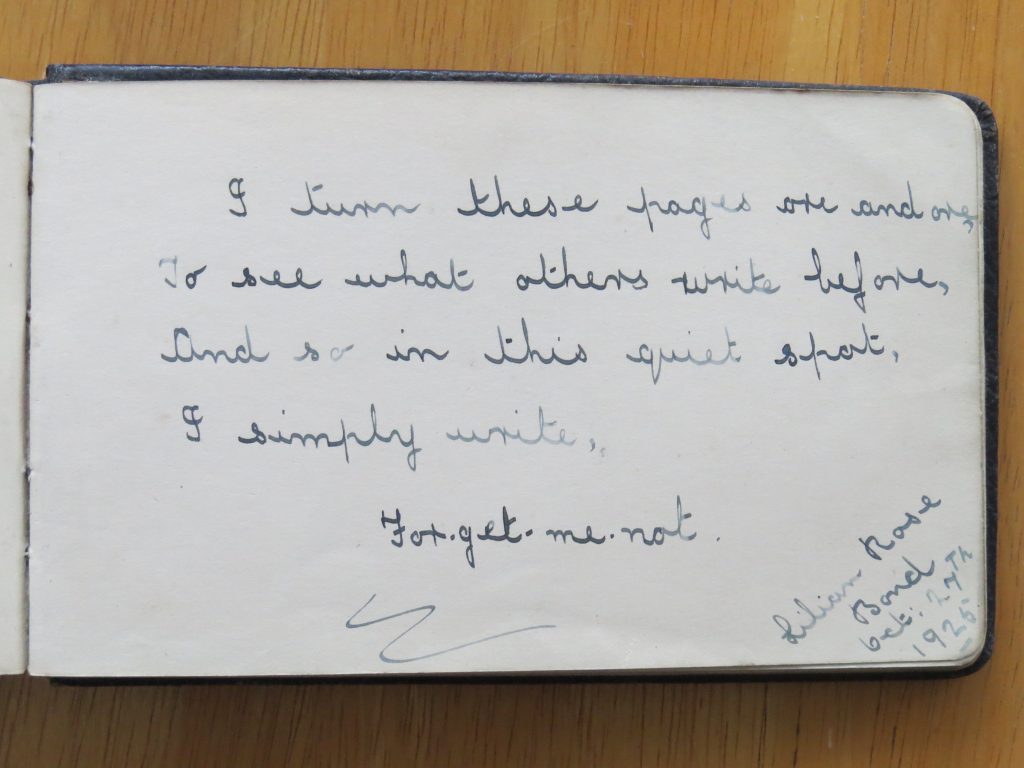 I turn these pages ore and ore,
To see what others write before,
And so in this quiet spot,
I simply write,
For-get-me-not.
Lilian Rose
Bond
Oct: 27th
1925.